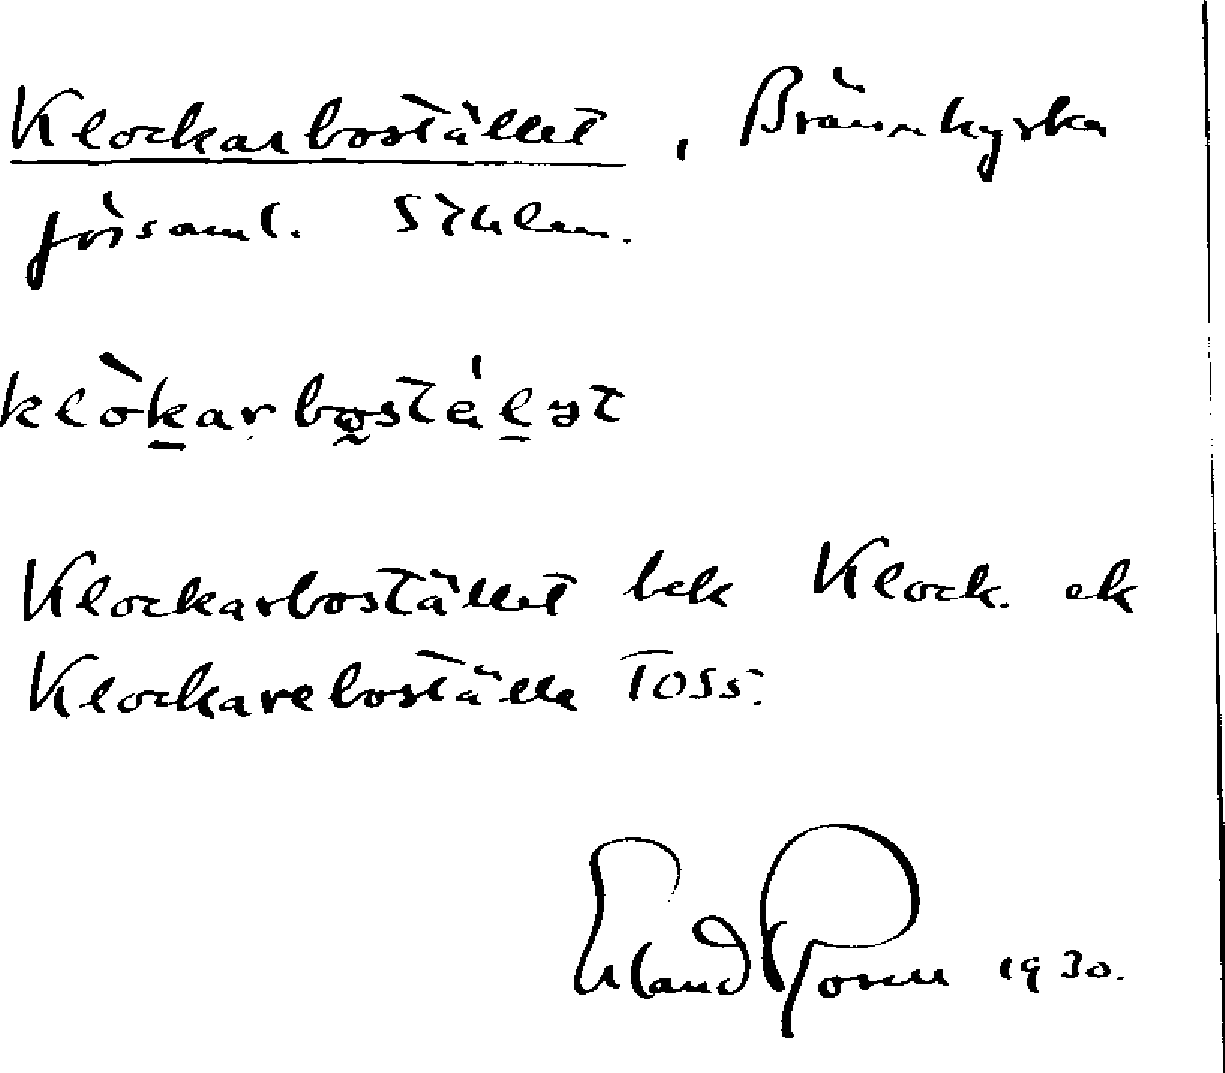 Klockarbostället, Brännkyrka
församl. Sthlm.
klòkarbostélət
Klockarbostället bek Klock. ek
Klockareboställe Toss.
Erland Rosell 1930.